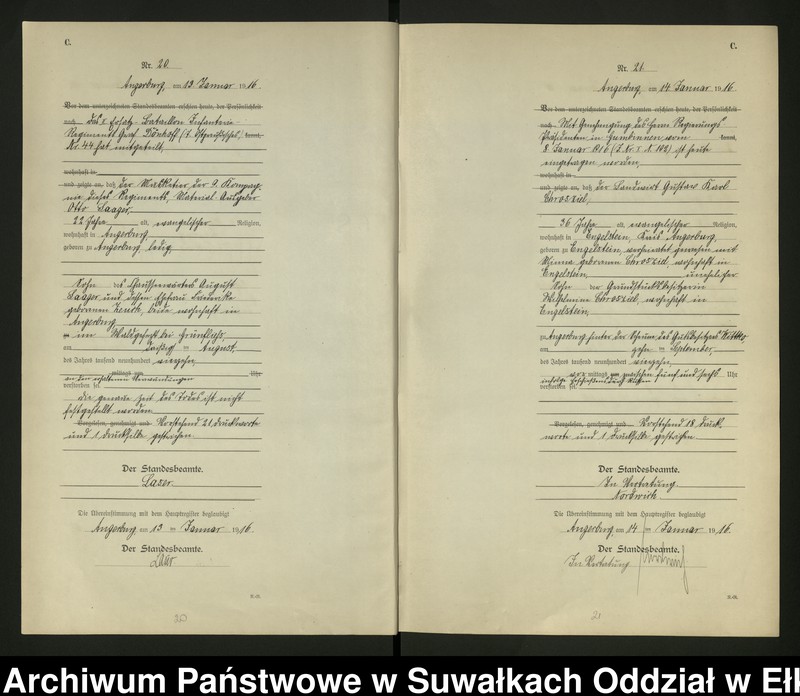 C.
Nr. 20
Angerburg, am 13 Januar 1916.
Vor dem unterzeichneten Standesbeamten erschien heute, der Persönlichkeit
nach Das I. Ersatz-Bataillon Infanterie-
Regiments Graf Dönhoff (7. Ostpreußisches) kannt,
Nr. 44 hat mitgeteilt,
wohnhaft in
und zeigte an, daß der Musketier der 9. Kompag-
nie dieses Regiments, Material-Ausgeber
Otto Saager,
22 Jahre alt, evangelischer Religion,
wohnhaft in Angerburg
geboren zu Angerburg, ledig,
Sohn des Chausseewärters August
Saager und dessen Ehefrau
geborenen beide wohnhaft in
Angerburg
im Waldgefecht bei
am dreißig ten August
des Jahres tausend neunhundert vierzehn,
mittags um Uhr
an den erlittenen Verwundungen
verstorben sei.
Die genaue Zeit des Todes ist nicht
festgestellt worden.
Vorgelesen, genehmigt und Vorstehend 21 Druckworte
und 1 Druckselbe gestrichen.
Der Standesbeamte.
Laser.
Die Übereinstimmung mit dem Hauptregister beglaubigt
Angerburg, am 13 ten Januar 1916.
Der Standesbeamte.
Laser
20
C.
Nr. 21.
Angerburg, am 14 Januar 1916
Vor dem unterzeichneten Standesbeamten erschien heute, der Persönlichkeit
nach Mit Genehmigung des Herrn Regierungs-
Präsidenten in Gumbinnen vom kannt,
8. Januar 1916 ist heute
eingetragen worden,
wohnhaft in
und zeigte an, daß der Landwirt Gustav Karl
Chrosziel,
36 Jahre alt, evangelischer Religion,
wohnhaft in Engelstein, Kreis Angerburg,
geboren zu Engelstein, verheiratet gewesen mit
Minna geborenen Chrosziel, wohnhaft in
Engelstein, unehelicher
Sohn der Grundstücksbesitzerin
Wilhelmine Chrosziel, wohnhaft in
Engelstein,
zu Angerburg hinter der Scheune des Gutsbesitzers
am zehn ten September
des Jahres tausend neunhundert vierzehn,
vor mittags um zwischen fünf und sechs Uhr
infolge Erschießens durch Russen
verstorben sei.
Vorgelesen, genehmigt und Vorstehend 18 Druck-
worte und 1 Druckselbe gestrichen.
Der Standesbeamte.
In Vertretung
Die Übereinstimmung mit dem Hauptregister beglaubigt
Angerburg, am 14 ten Januar 1916.
Der Standesbeamte.
In Vertretung
21
Archiwum Państwowe w Suwałkach Oddział w Eł